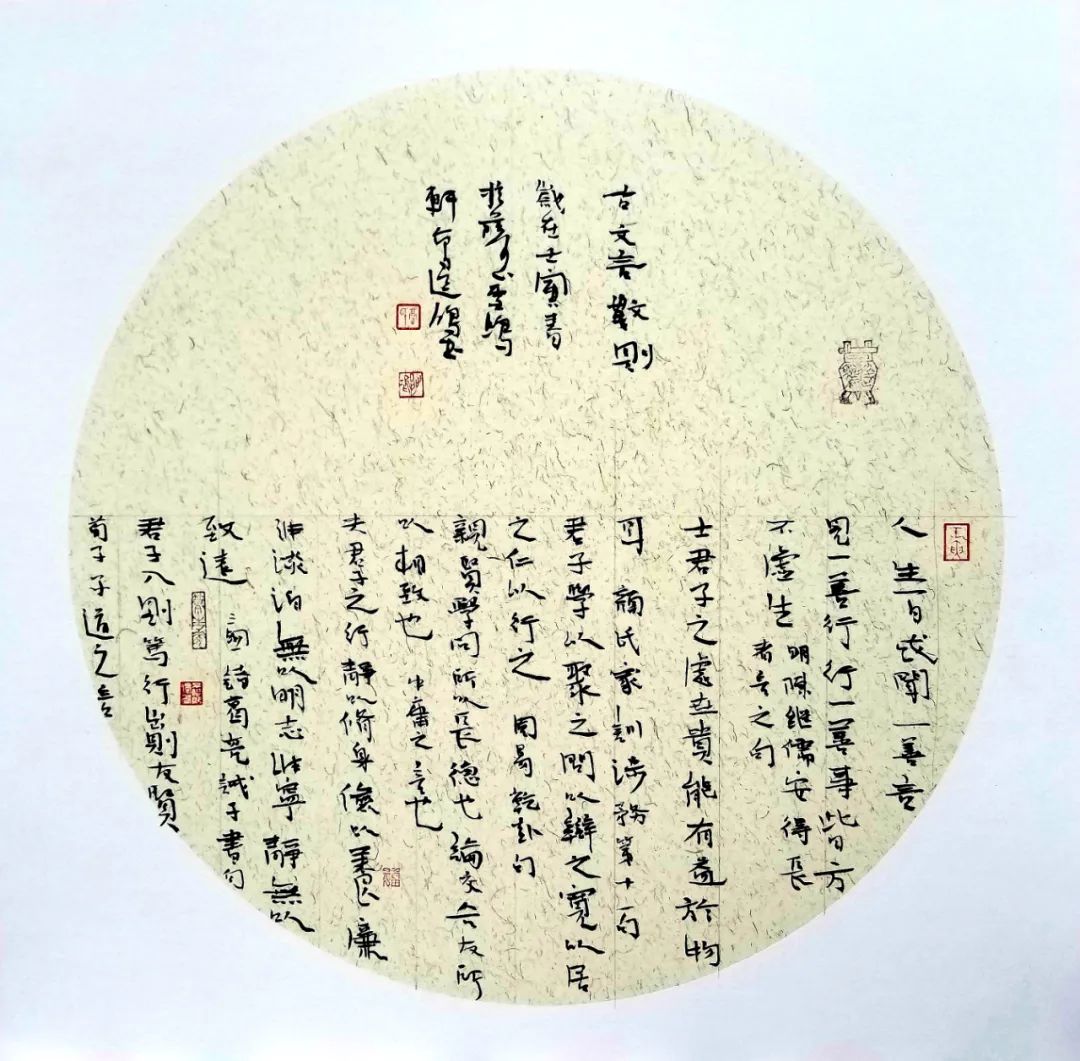 古文言數則
歲在壬寅書
軒
人生一日或聞一善言
見一善行行一善事此日方
不虛生 明陳繼儒安得長
者言之句
士君子之處世貴能有益於物
耳 顏氏家訓涉務第十一句
君子學以聚之問以辯之寬以居
之仁以行之 周易乾卦句
親賢學問所以長德也論交合友所
以相致也 中庸之言也
夫君子之行靜以脩身儉以養德廉
非淡泊無以明志非寧靜無以
致遠 諸葛亮誡子書句
君子入則篤行出則友賢
荀子子道之言